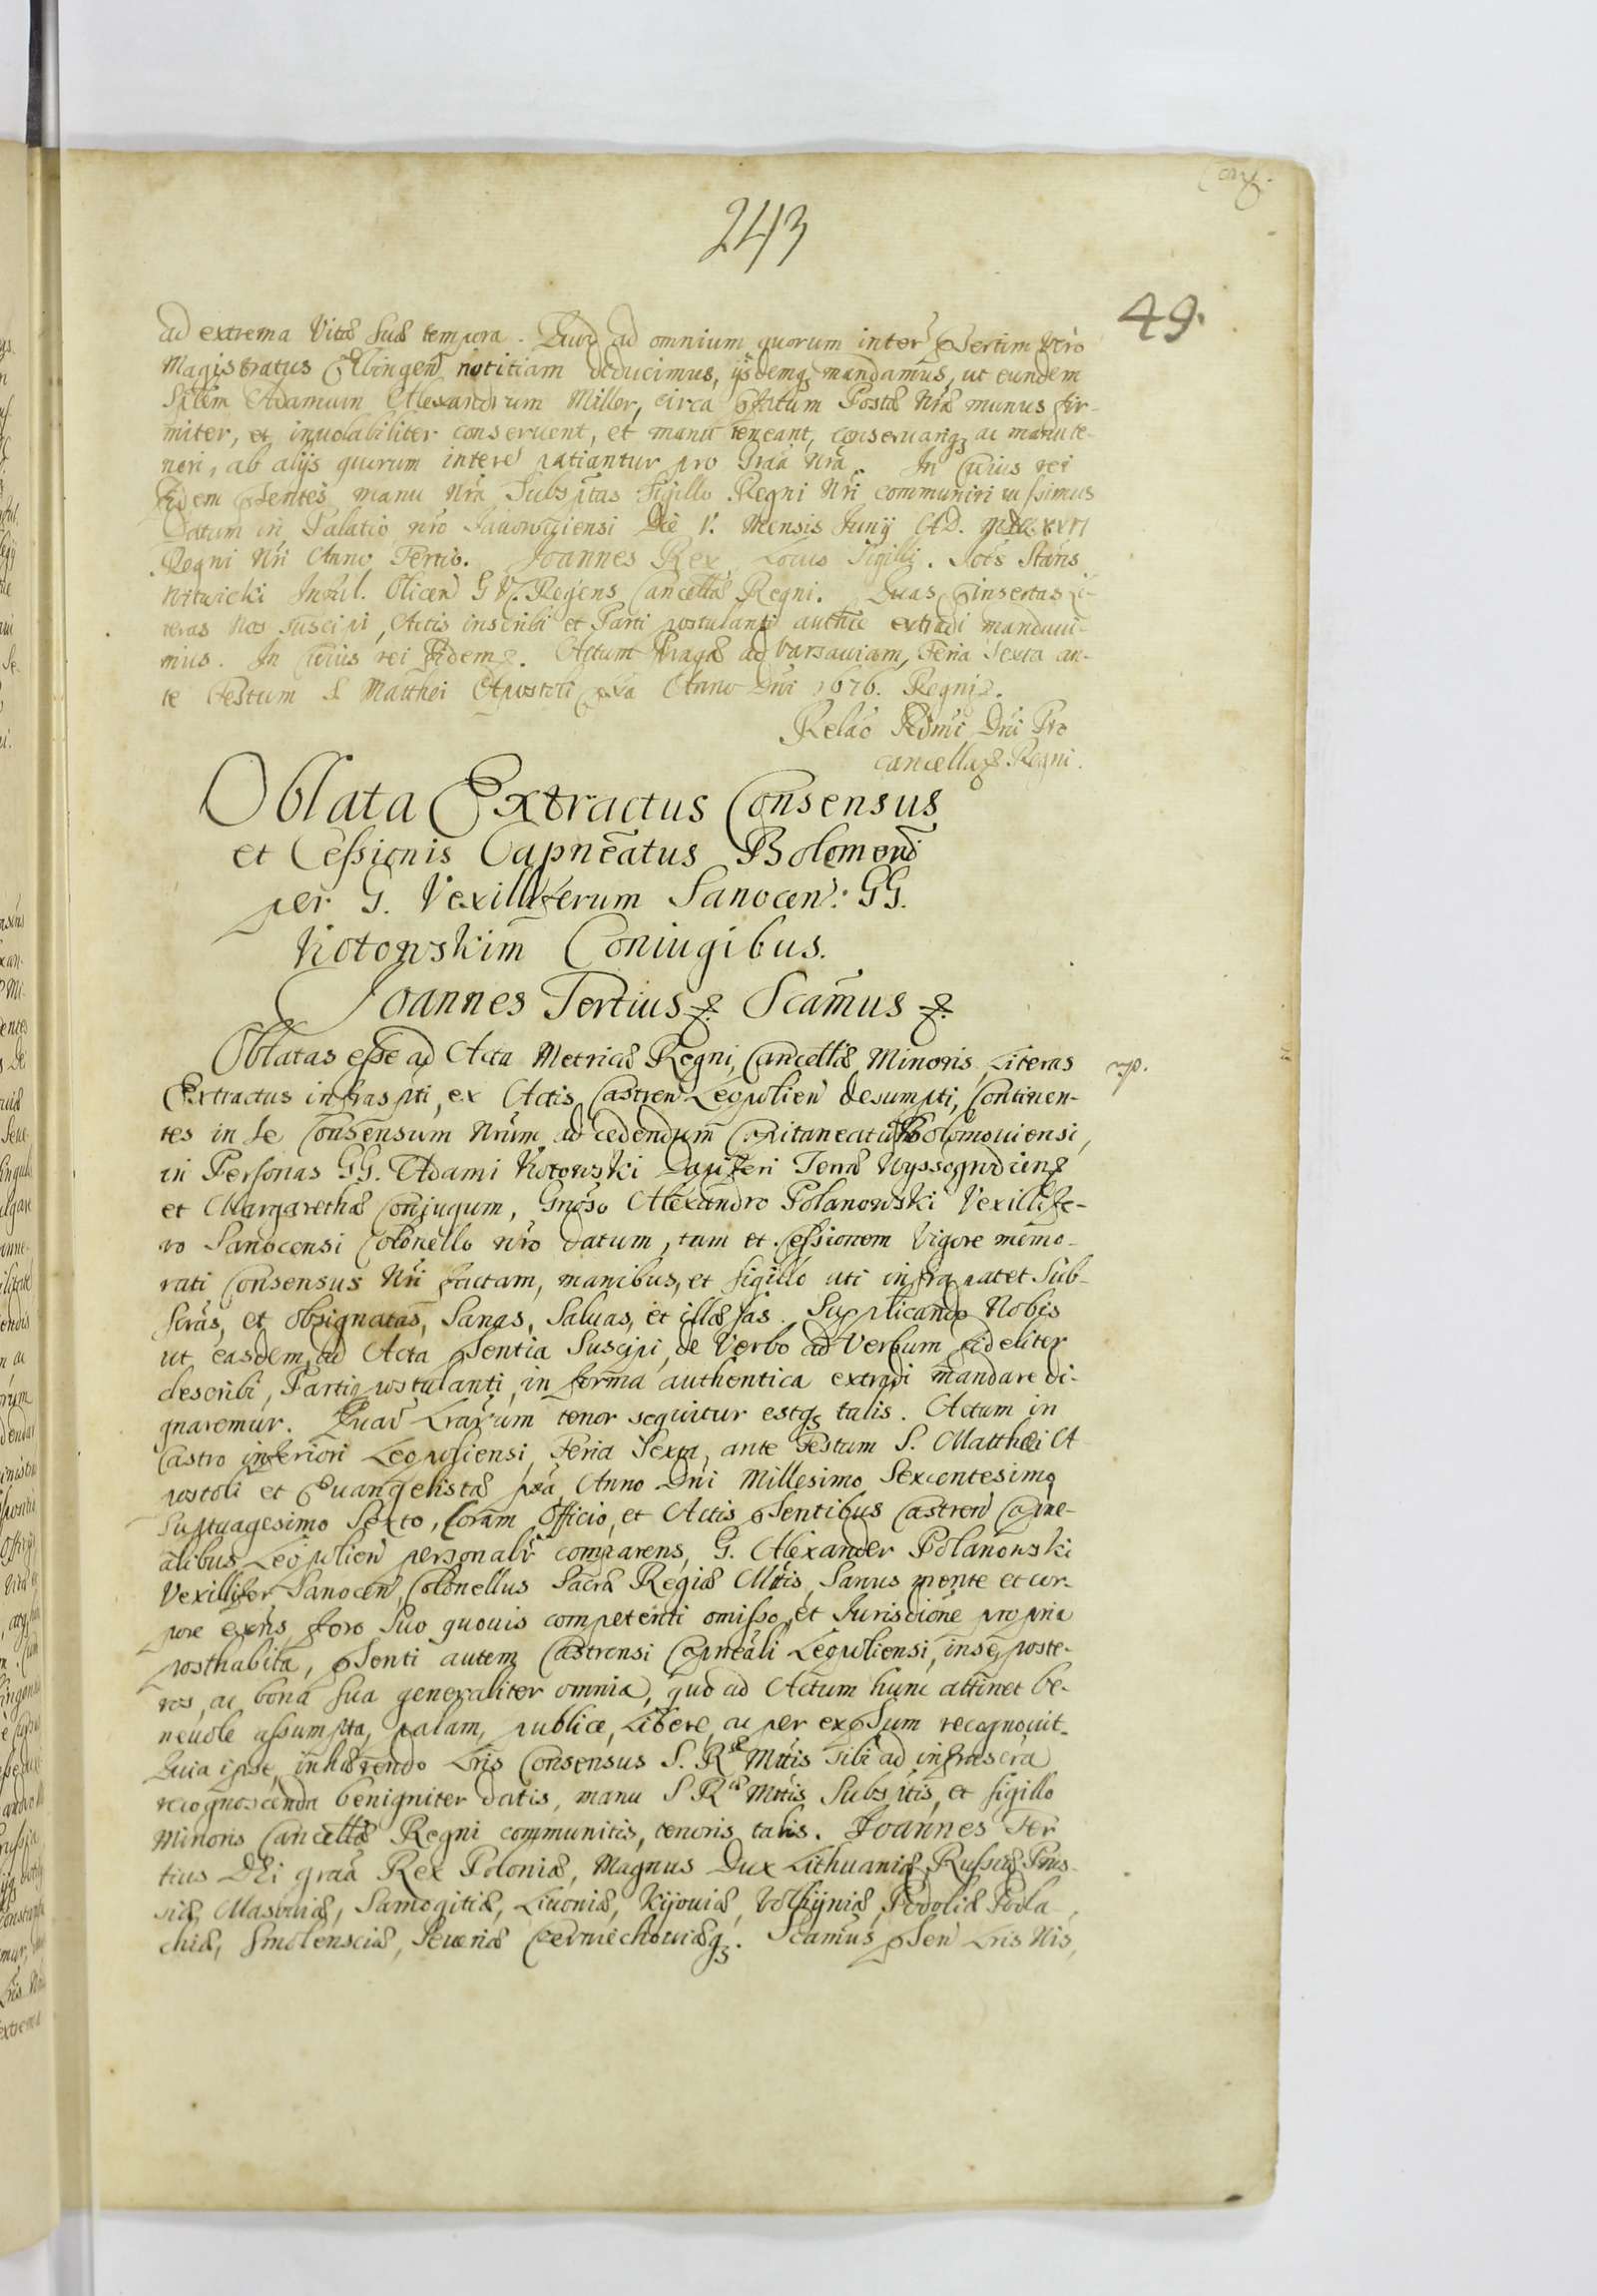 243
49.
ad extrema Vitæ suæ tempora. Quod ad omnium quorum inter̃ p̃sertim vero
Magistratus Elbingen̄ notitiam deducimus, ijsdemq; mandamus, ut eundem
Adamum Alexandrum Miller, circa p̃fatum Postæ Nr̃æ munus fir-
miter, et inuiolabiliter conseruent, et manu teneant, conseruariq; ac manute-
neri, ab alijs quorum interẽ patiantur pro Gr̃aã Nr̃a. In Cuius rei
Fidem p̃sentes manu Nr̃a Subsptas Sigillo Regni Nr̃i communiri iussimus
Datum in Palatio nr̃o Die V. Mensis Junij A.D.
Regni Nr̃i Anno Tertio. Joannes Rex Locus Sigilli.
Witwicki Regens Cancellæ Regni. Quas p̃insertas Li-
teras Nos suscipi, Actis inscribi et Parti postulanti authce extradi mandaui-
mus. In Cuius rei Fidem &. Actum Pragæ ad Varsauiam, Feria Sexta an-
te Festum S Matthei Apostoli Anno Dni 1676. Regni &.
Relaõ Rdmi Dni Pro
cancellarȳ Regni.
Oblata Extractus Consensus
et Cessionis Capnẽatus Bolemouẽ
per G. Vexilliferum Sanocen̄. GG.
Kotowskim̄ Coniugibus.
Joannes Tertius &. Scam̄us &.
Oblatas esse ad Acta Metricæ Regni, Cancellæ Minoris, Literas
Extractus infraspti, ex Actis Castren̄ Leopolien̄ desumpti, Continen-
tes in se Consensum Nr̃um ad cedendum Capitaneatu Bolomouiensi,
in Personas GG. Adami Kotowski Dapiferi Terræ Wyssogrodien̄
et Margarethæ Conjugum, Gnroso Alexandro Polanowski Vexillife-
ro Sanocensi Colonello nr̃o datum, tum et Cessionem Vigore memo-
rati Consensus Nr̃i factam, manibus, et sigillo uti infra patet Sub-
scrãs, et obsignatas, Sanas, Saluas, et illæsas. Supplicando Nobis
ut easdem, ad Acta p̃sentia Suscipi, de Verbo ad Verbum fideliter
describi, Partiq; postulanti, in forma authentica extradi mandare di-
gnaremur. Quar̃ Lrarum tenor sequitur estq; talis. Actum in
Castro inferiori Leopoliensi, Feria Sexta, ante Festum S. Matthæi A-
postoli et Euangelistæ Anno Dni Millesimo Sexcentesimo
Suptuagesimo Sexto, Coram Officio, et Actis p̃sentibus Castren̄ Capne-
alibus Leopolien̄ personalr̃ comparens, G. Alexander Polanowski
Vexillifer Sanocen̄, Colonellus Sacræ Regiæ Mttis, Sanus mente et cor-
pore exñs Foro suo quouis competenti omisso, et Jurisdiõne propria
posthabita, p̃senti autem Castrensi Capneali Leopoliensi, inse, poste-
ros, ac bona sua generaliter omnia, quo ad Actum hunc attinet be-
neuole assumpta, palam, publice, Libere, ac per expsum recognouit.
Quia ipse, inhærendo Lris Consensus S. Ræ Mttis sibi ad infrascra
recognoscenda benigniter datis, manu S Ræ Mttis Subsptis, et sigillo
Minoris Cancellæ Regni communitis, tenoris talis. Joannes Ter
tius DEi graã Rex Poloniæ, Magnus Dux Lithuaniæ, Russiæ Prus-
siæ, Masouiæ, Samogitiæ, Liuoniæ, Kijouiæ, Volhyniæ, Podoliæ Podla-
chiæ, Smolensciæ, Seueriæ Czerniechouiæq;. Scam̄us p̃sen̄ Lris Nis,